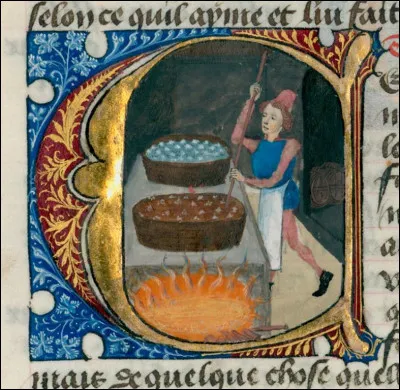 selon ce quil ayme et lui fait
mais de quelque chose quel